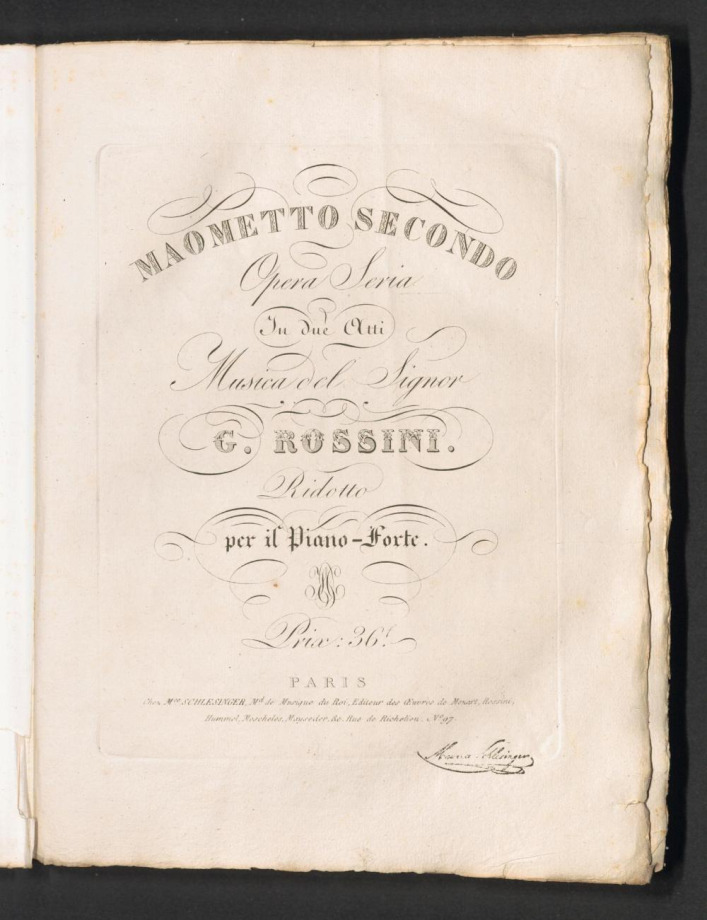 MAOMETTO SECONDO
Opera Seria
In due Atti
Musica del Signor
G. ROSSINI.
Ridotto
per il Piano-Forte.
Prix: 36f.
PARIS
Chez Mce SCHLESINGER, Md de Musique du Roi, Editeur des Œuvres de Mozart, Rossini,
Hummel, Moscheles, Mayseder, &c. Rue de Richelieu, No. 97.
Schlesinger